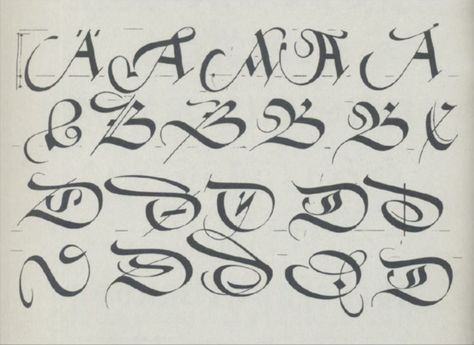 A A A A A
B B B B B C
D D D D D
D D D D D